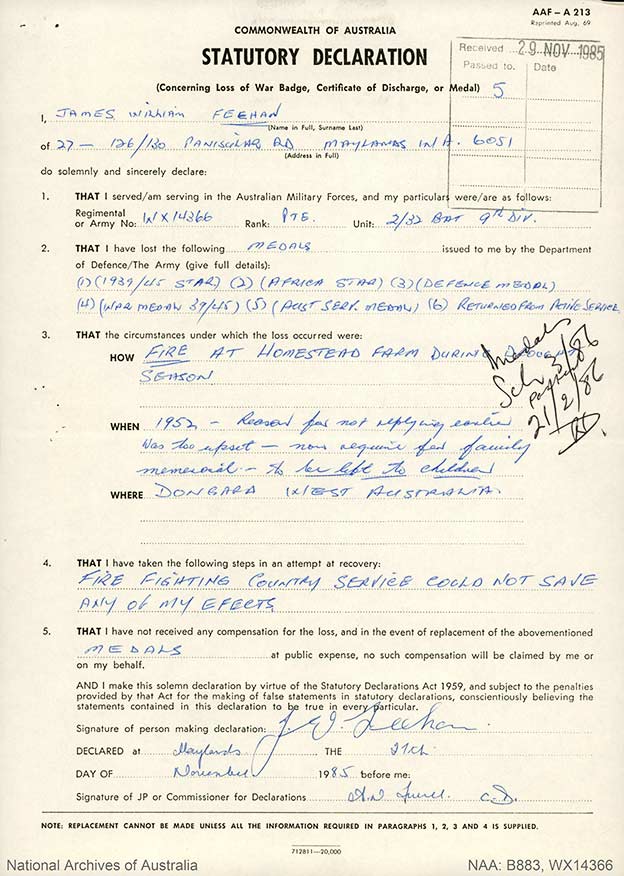 AAF – A 213
Reprinted Aug. 69
COMMONWEALTH OF AUSTRALIA
STATUTORY DECLARATION
Received 29 NOV 1985
Passed to. Date
(Concerning Loss of War Badge, Certificate of Discharge, or Medal) 5
I, JAMES WILLIAM FEEHAN
(Name in Full, Surname Last)
of 27 – 126/130 PANISULAR RD MAYLANDS W A. 6051
(Address in Full)
do solemnly and sincerely declare:
1. THAT I served/am serving in the Australian Military Forces, and my particulars were/are as follows:
Regimental
or Army No: WX14366 Rank: PTE. Unit: 2/32 BAT 9th DIV.
2. THAT I have lost the following MEDALS issued to me by the Department
of Defence/The Army (give full details):
(1) (1939/45 STAR) (2) (AFRICA STAR) (3) (DEFENCE MEDAL)
(4) (WAR MEDAL 39/45) (5) (AUST SERV. MEDAL) (6) RETURNED FROM ACTIVE SERVICE
3. THAT the circumstances under which the loss occurred were:
HOW FIRE AT HOMESTEAD FARM DURING DROUGHT
SEASON
Medals
Sch 3/86
posted
21/2/86
WHEN 1952 – Reason for not replying earlier
Was too upset – now require for family
memorial – to be left to children
WHERE DONGARA WEST AUSTRALIA.
4. THAT I have taken the following steps in an attempt at recovery:
FIRE FIGHTING COUNTRY SERVICE COULD NOT SAVE
ANY OF MY EFECTS
5. THAT I have not received any compensation for the loss, and in the event of replacement of the abovementioned
MEDALS at public expense, no such compensation will be claimed by me or
on my behalf.
AND I make this solemn declaration by virtue of the Statutory Declarations Act 1959, and subject to the penalties
provided by that Act for the making of false statements in statutory declarations, conscientiously believing the
statements contained in this declaration to be true in every particular.
Signature of person making declaration: J. W. Feehan
DECLARED at Maylands THE 27th
DAY OF November 1985 before me:
Signature of JP or Commissioner for Declarations C.D.
NOTE: REPLACEMENT CANNOT BE MADE UNLESS ALL THE INFORMATION REQUIRED IN PARAGRAPHS 1, 2, 3 AND 4 IS SUPPLIED.
712811—20,000
National Archives of Australia NAA: B883, WX14366